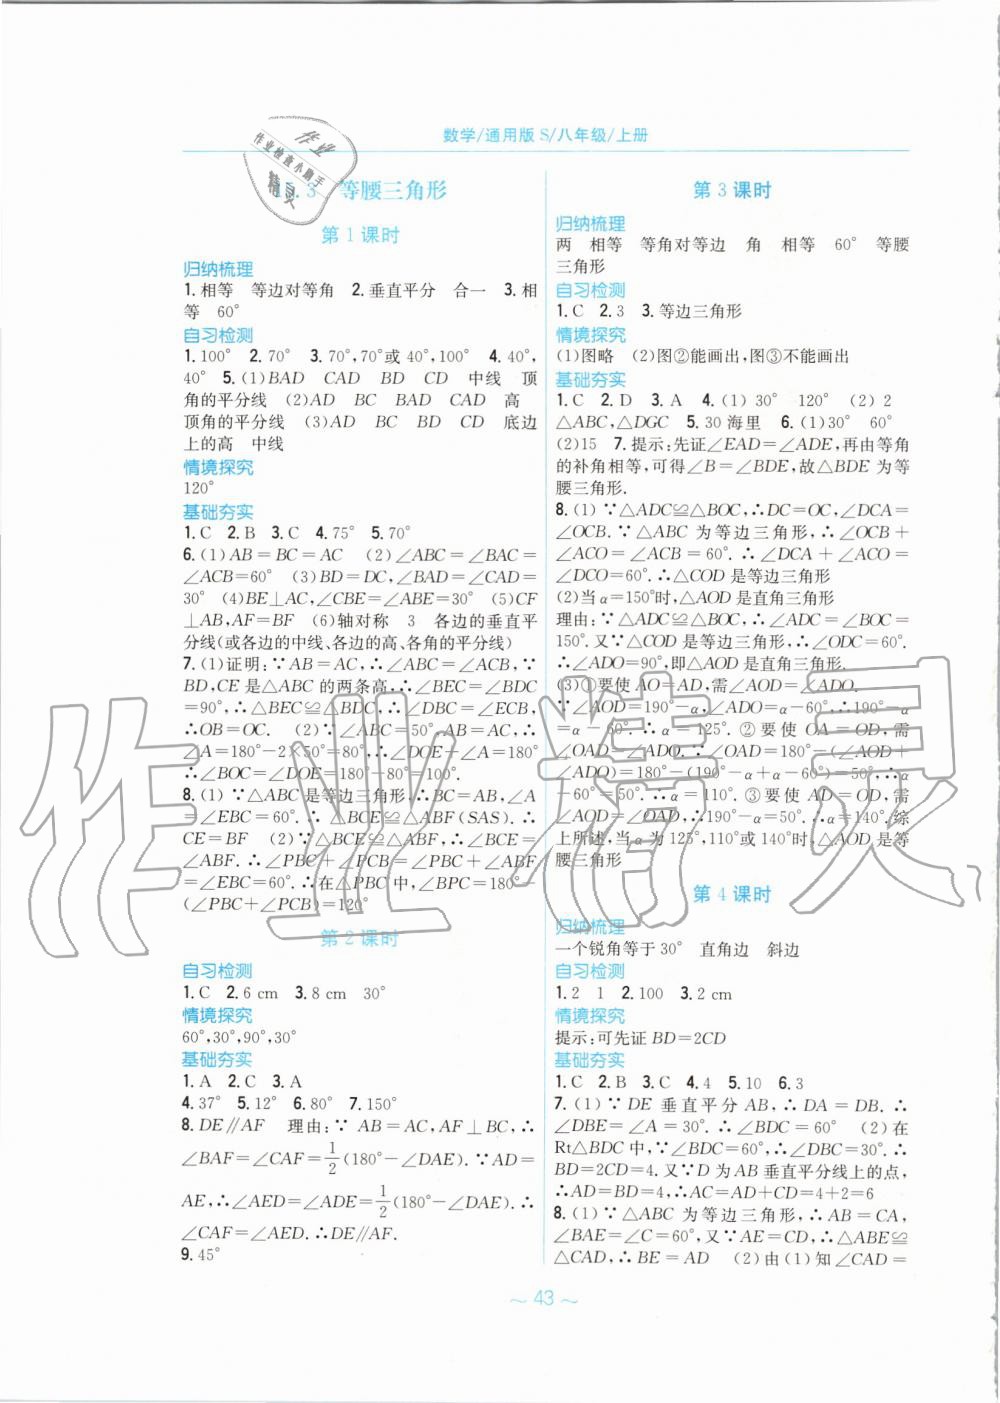 数学/通用版 S/八年级/上册
作业
作业检查小助手
精灵
5.3 等腰三角形
第 1 课时
归纳梳理
1.相等 等边对等角 2.垂直平分 合一 3.相
等 60°
自习检测
1.100° 2.70° 3.70°,70°或 40°,100° 4.40°,
40° 5.(1)BAD CAD BD CD 中线 顶
角的平分线 (2)AD BC BAD CAD 高
顶角的平分线 (3)AD BC BD CD 底边
上的高 中线
情境探究
120°
基础夯实
1.C 2.B 3.C 4.75° 5.70°
6.(1)AB=BC=AC (2)∠ABC=∠BAC=
∠ACB=60° (3)BD=DC,∠BAD=∠CAD=
30° (4)BE⊥AC,∠CBE=∠ABE=30° (5)CF
⊥AB,AF=BF (6)轴对称 3 各边的垂直平
分线(或各边的中线、各边的高、各角的平分线)
7.(1)证明:∵AB=AC,∴∠ABC=∠ACB,∵
BD,CE是△ABC的两条高,∴∠BEC=∠BDC
=90°,∴△BEC≌△BDC,∴∠DBC=∠ECB,
∴OB=OC. (2)∵∠ABC=50°,AB=AC,∴
∠A=180°-2×50°=80°,∴∠DOE+∠A=180°
∴∠BOC=∠DOE=180°-80°=100°.
8.(1)∵△ABC是等边三角形,∴BC=AB,∠A
=∠EBC=60°.∴△BCE≌△ABF(SAS).∴
CE=BF (2)∵△BCE≌△ABF,∴∠BCE=
∠ABF.∴∠PBC+∠PCB=∠PBC+∠ABF
=∠EBC=60°.∴在△PBC中,∠BPC=180°-
(∠PBC+∠PCB)=120°
第 2 课时
自习检测
1.C 2.6 cm 3.8 cm 30°
情境探究
60°,30°,90°,30°
基础夯实
1.A 2.C 3.A
4.37° 5.12° 6.80° 7.150°
8.DE∥AF 理由:∵AB=AC,AF⊥BC,∴
∠BAF=∠CAF=1/2(180°-∠DAE).∵AD=
AE,∴∠AED=∠ADE=1/2(180°-∠DAE).∴
∠CAF=∠AED.∴DE∥AF.
9.45°
第 3 课时
归纳梳理
两 相等 等角对等边 角 相等 60° 等腰
三角形
自习检测
1.C 2.3 3.等边三角形
情境探究
(1)图略 (2)图②能画出,图③不能画出
基础夯实
1.C 2.D 3.A 4.(1)30° 120° (2)2
△ABC,△DGC 5.30 海里 6.(1)30° 60°
(2)15 7.提示:先证∠EAD=∠ADE,再由等角
的补角相等,可得∠B=∠BDE,故△BDE为等
腰三角形.
8.(1)∵△ADC≌△BOC,∴DC=OC,∠DCA=
∠OCB.∵△ABC为等边三角形,∴∠OCB+
∠ACO=∠ACB=60°.∴∠DCA+∠ACO=
∠DCO=60°.∴△COD是等边三角形
(2)当α=150°时,△AOD是直角三角形
理由:∵△ADC≌△BOC,∴∠ADC=∠BOC=
150°.又∵△COD是等边三角形,∴∠ODC=60°.
∴∠ADO=90°,即△AOD是直角三角形.
(3)①要使AO=AD,需∠AOD=∠ADO.
∵∠AOD=190°-α,∠ADO=α-60°,∴190°-α
=α-60°.∴α=125°. ②要使OA=OD,需
∠OAD=∠ADO.∵∠OAD=180°-(∠AOD+
∠ADO)=180°-(190°-α+α-60°)=50°,∴α-
60°=50°.∴α=110°.③要使AD=OD,需
∠AOD=∠OAD,∴190°-α=50°.∴α=140°.综
上所述,当α为125°,110°或140°时,△AOD是等
腰三角形
第 4 课时
归纳梳理
一个锐角等于 30° 直角边 斜边
自习检测
1.2 1 2.100 3.2 cm
情境探究
提示:可先证BD=2CD
基础夯实
1.C 2.B 3.C 4.4 5.10 6.3
7.(1)∵DE垂直平分AB,∴DA=DB.∴
∠DBE=∠A=30°.∴∠BDC=60° (2)在
Rt△BDC中,∵∠BDC=60°,∴∠DBC=30°.∴
BD=2CD=4.又∵D为AB垂直平分线上的点,
∴AD=BD=4,∴AC=AD+CD=4+2=6
8.(1)∵△ABC为等边三角形,∴AB=CA,
∠BAE=∠C=60°.又∵AE=CD,∴△ABE≌
△CAD,∴BE=AD (2)由(1)知∠CAD=
~ 43 ~
作业精灵